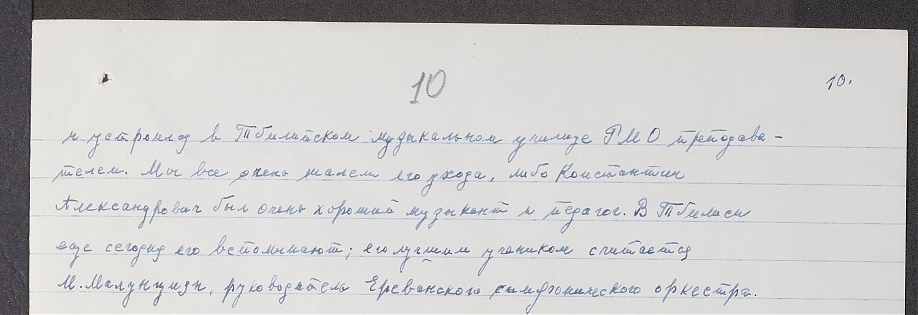 10
10.
и устроился в Тбилисском музыкальном училище РМО преподава-
телем. Мы все очень жалеем его ухода, либо Константин
Александрович был очень хороший музыкант и педагог. В Тбилиси
еще сегодня его вспоминают; его лучшим учеником считается
М. Малунцян, руководитель Ереванского симфонического оркестра.